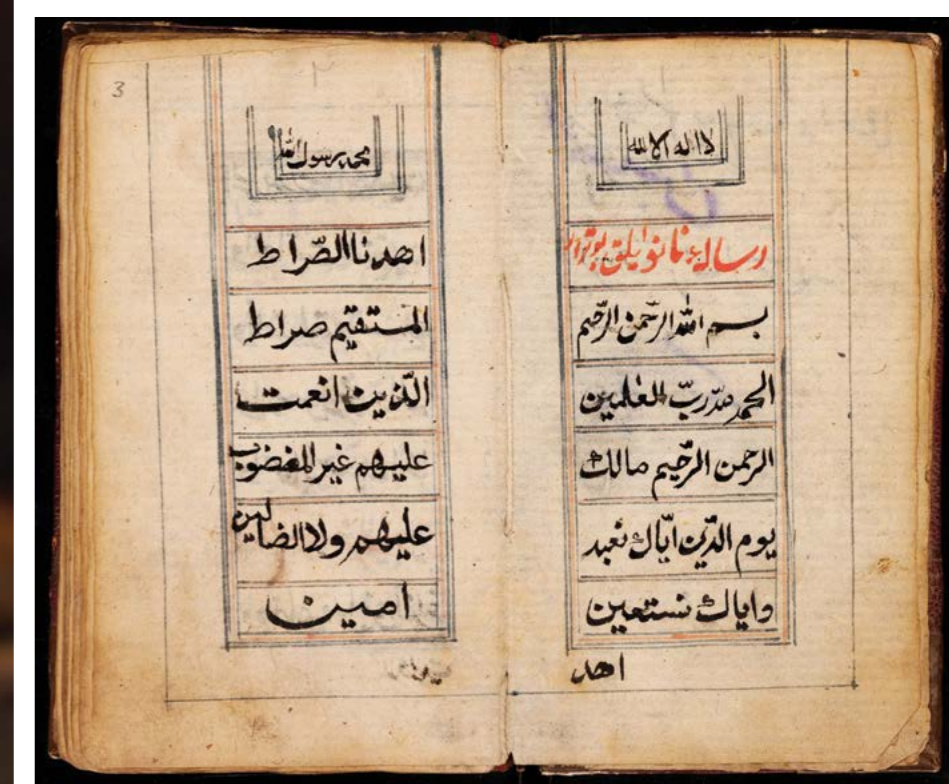 لا اله الا الله
بسم الله الرحمن الرحيم
الحمد لله ربّ العٰلمين
الرحمن الرّحيم مالك
يوم الدّين ايّاك نعبد
واياك نستعين
اهد
3
محمد رسول الله
اهدنا الصّراط
المستقيم صراط
الّذين انعمت
عليهم غير المغضوب
عليهم ولا الضالين
امين